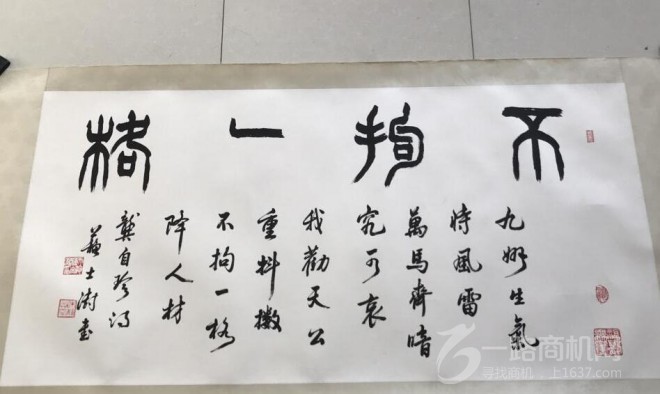 不拘一格
九州生氣
恃風雷
萬馬齊喑
究可哀
我勸天公
重抖擻
不拘一格
降人材
龔自珍詩
蘇士澍書
一路商机网
寻找商机，上1637.com